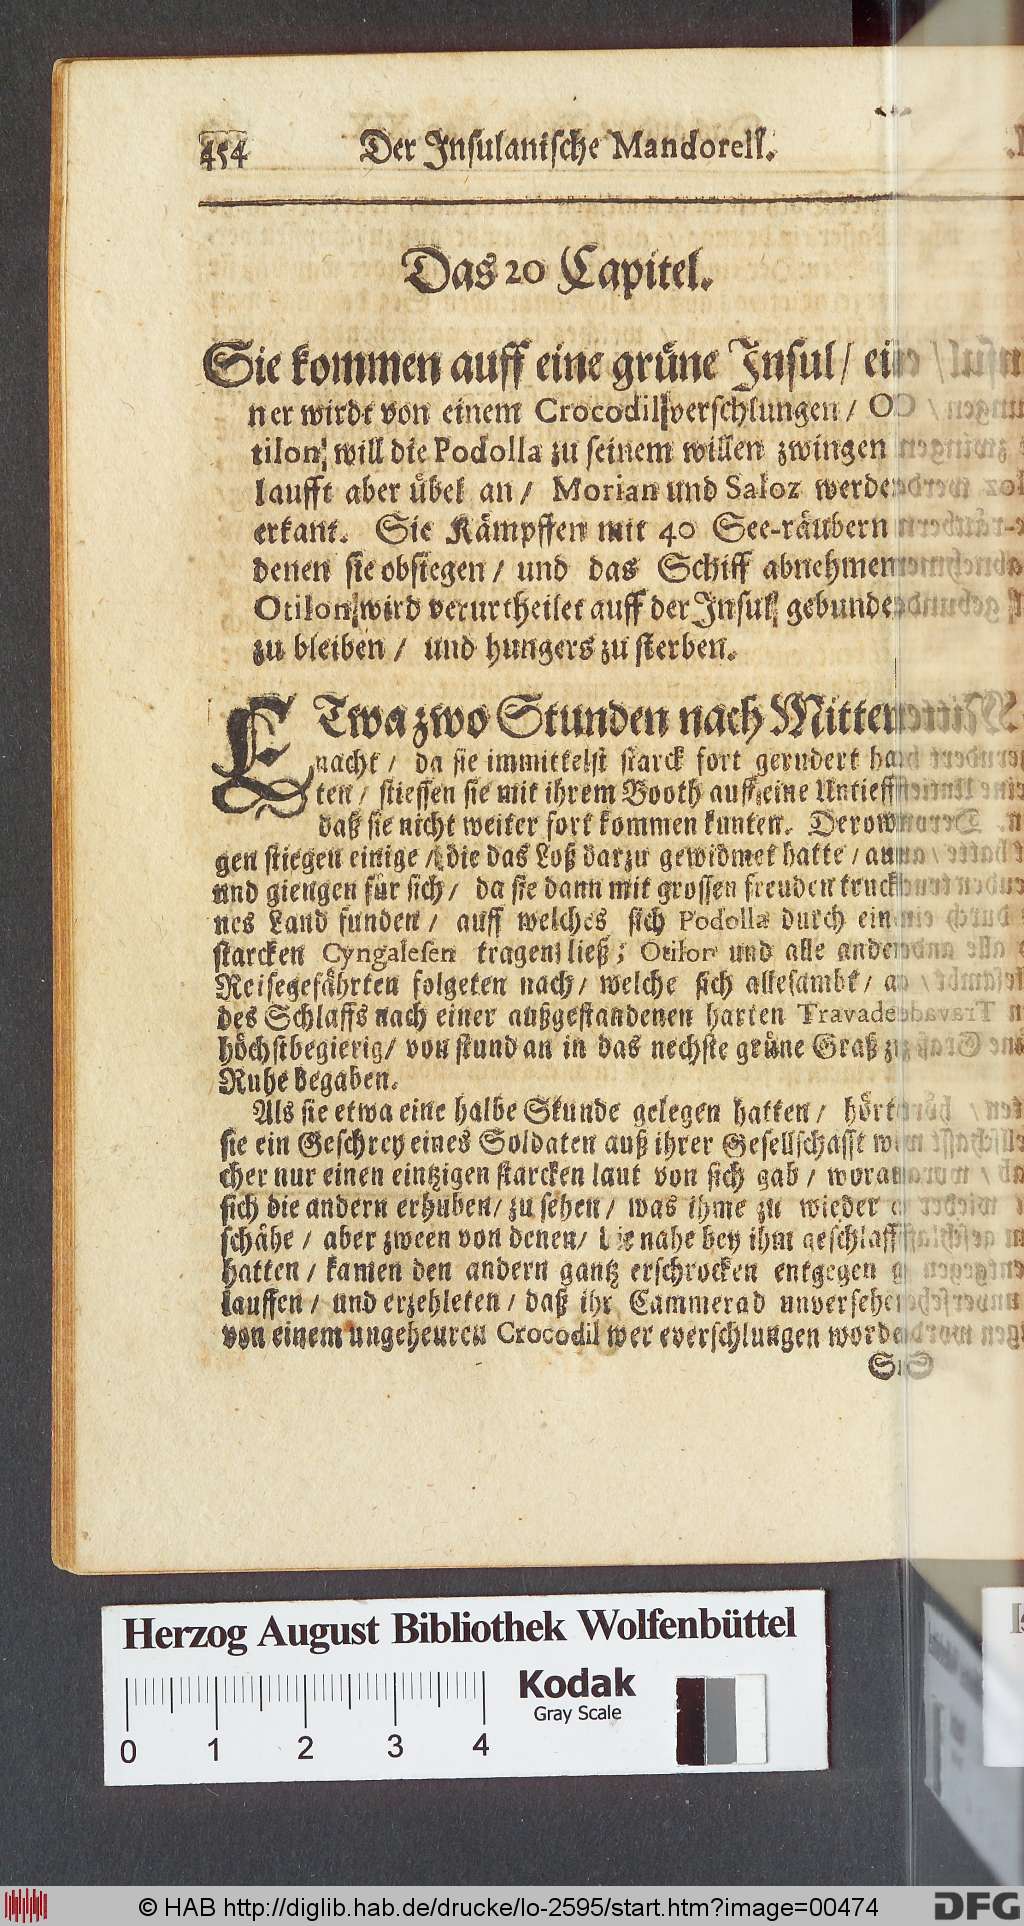 454 Der Insulanische Mandorell.
Das 20 Capitel.
Sie kommen auff eine grüne Insul / ei
ner wirdt von einem Crocodil verschlungen / O
tilon will die Podolla zu seinem willen zwingen
laufft aber übel an / Morian und Saloz werde
erkant. Sie Kämpffen mit 40 See-räubern
denen sie obsiegen / und das Schiff abnehmen
Otilon wird verurtheilet auff der Insul gebunde
zu bleiben / und hungers zu sterben.
ETwa zwo Stunden nach Mitter
nacht / da sie immittelst starck fort gerudert ha
ten / stiessen sie mit ihrem Booth auff eine Untieff
daß sie nicht weiter fort kommen kunten. Derow
gen stiegen einige / die das Loß darzu gewidmet hatte / au
und giengen für sich / da sie dann mit grossen freuden truck
nes Land funden / auff welches sich Podolla durch ein
starcken Cyngalesen tragen ließ; Otilon und alle ander
Reisegefährten folgeten nach / welche sich allesambt / a
des Schlaffs nach einer außgestandenen harten Travade
höchstbegierig / von stund an in das nechste grüne Graß z
Ruhe begaben.
Als sie etwa eine halbe Stunde gelegen hatten / hört
sie ein Geschrey eines Soldaten auß ihrer Gesellschafft w
cher nur einen eintzigen starcken laut von sich gab / wora
sich die andern erhuben / zu sehen / was ihme zu wieder
schähe / aber zween von denen / die nahe bey ihm geschlaff
hatten / kamen den andern gantz erschrocken entgegen g
lauffen / und erzehleten / daß ihr Cammerad unversehe
von einem ungeheuren Crocodil wer everschlungen worde
Herzog August Bibliothek Wolfenbüttel
Kodak
Gray Scale
0 1 2 3 4
© HAB http://diglib.hab.de/drucke/lo-2595/start.htm?image=00474
DFG